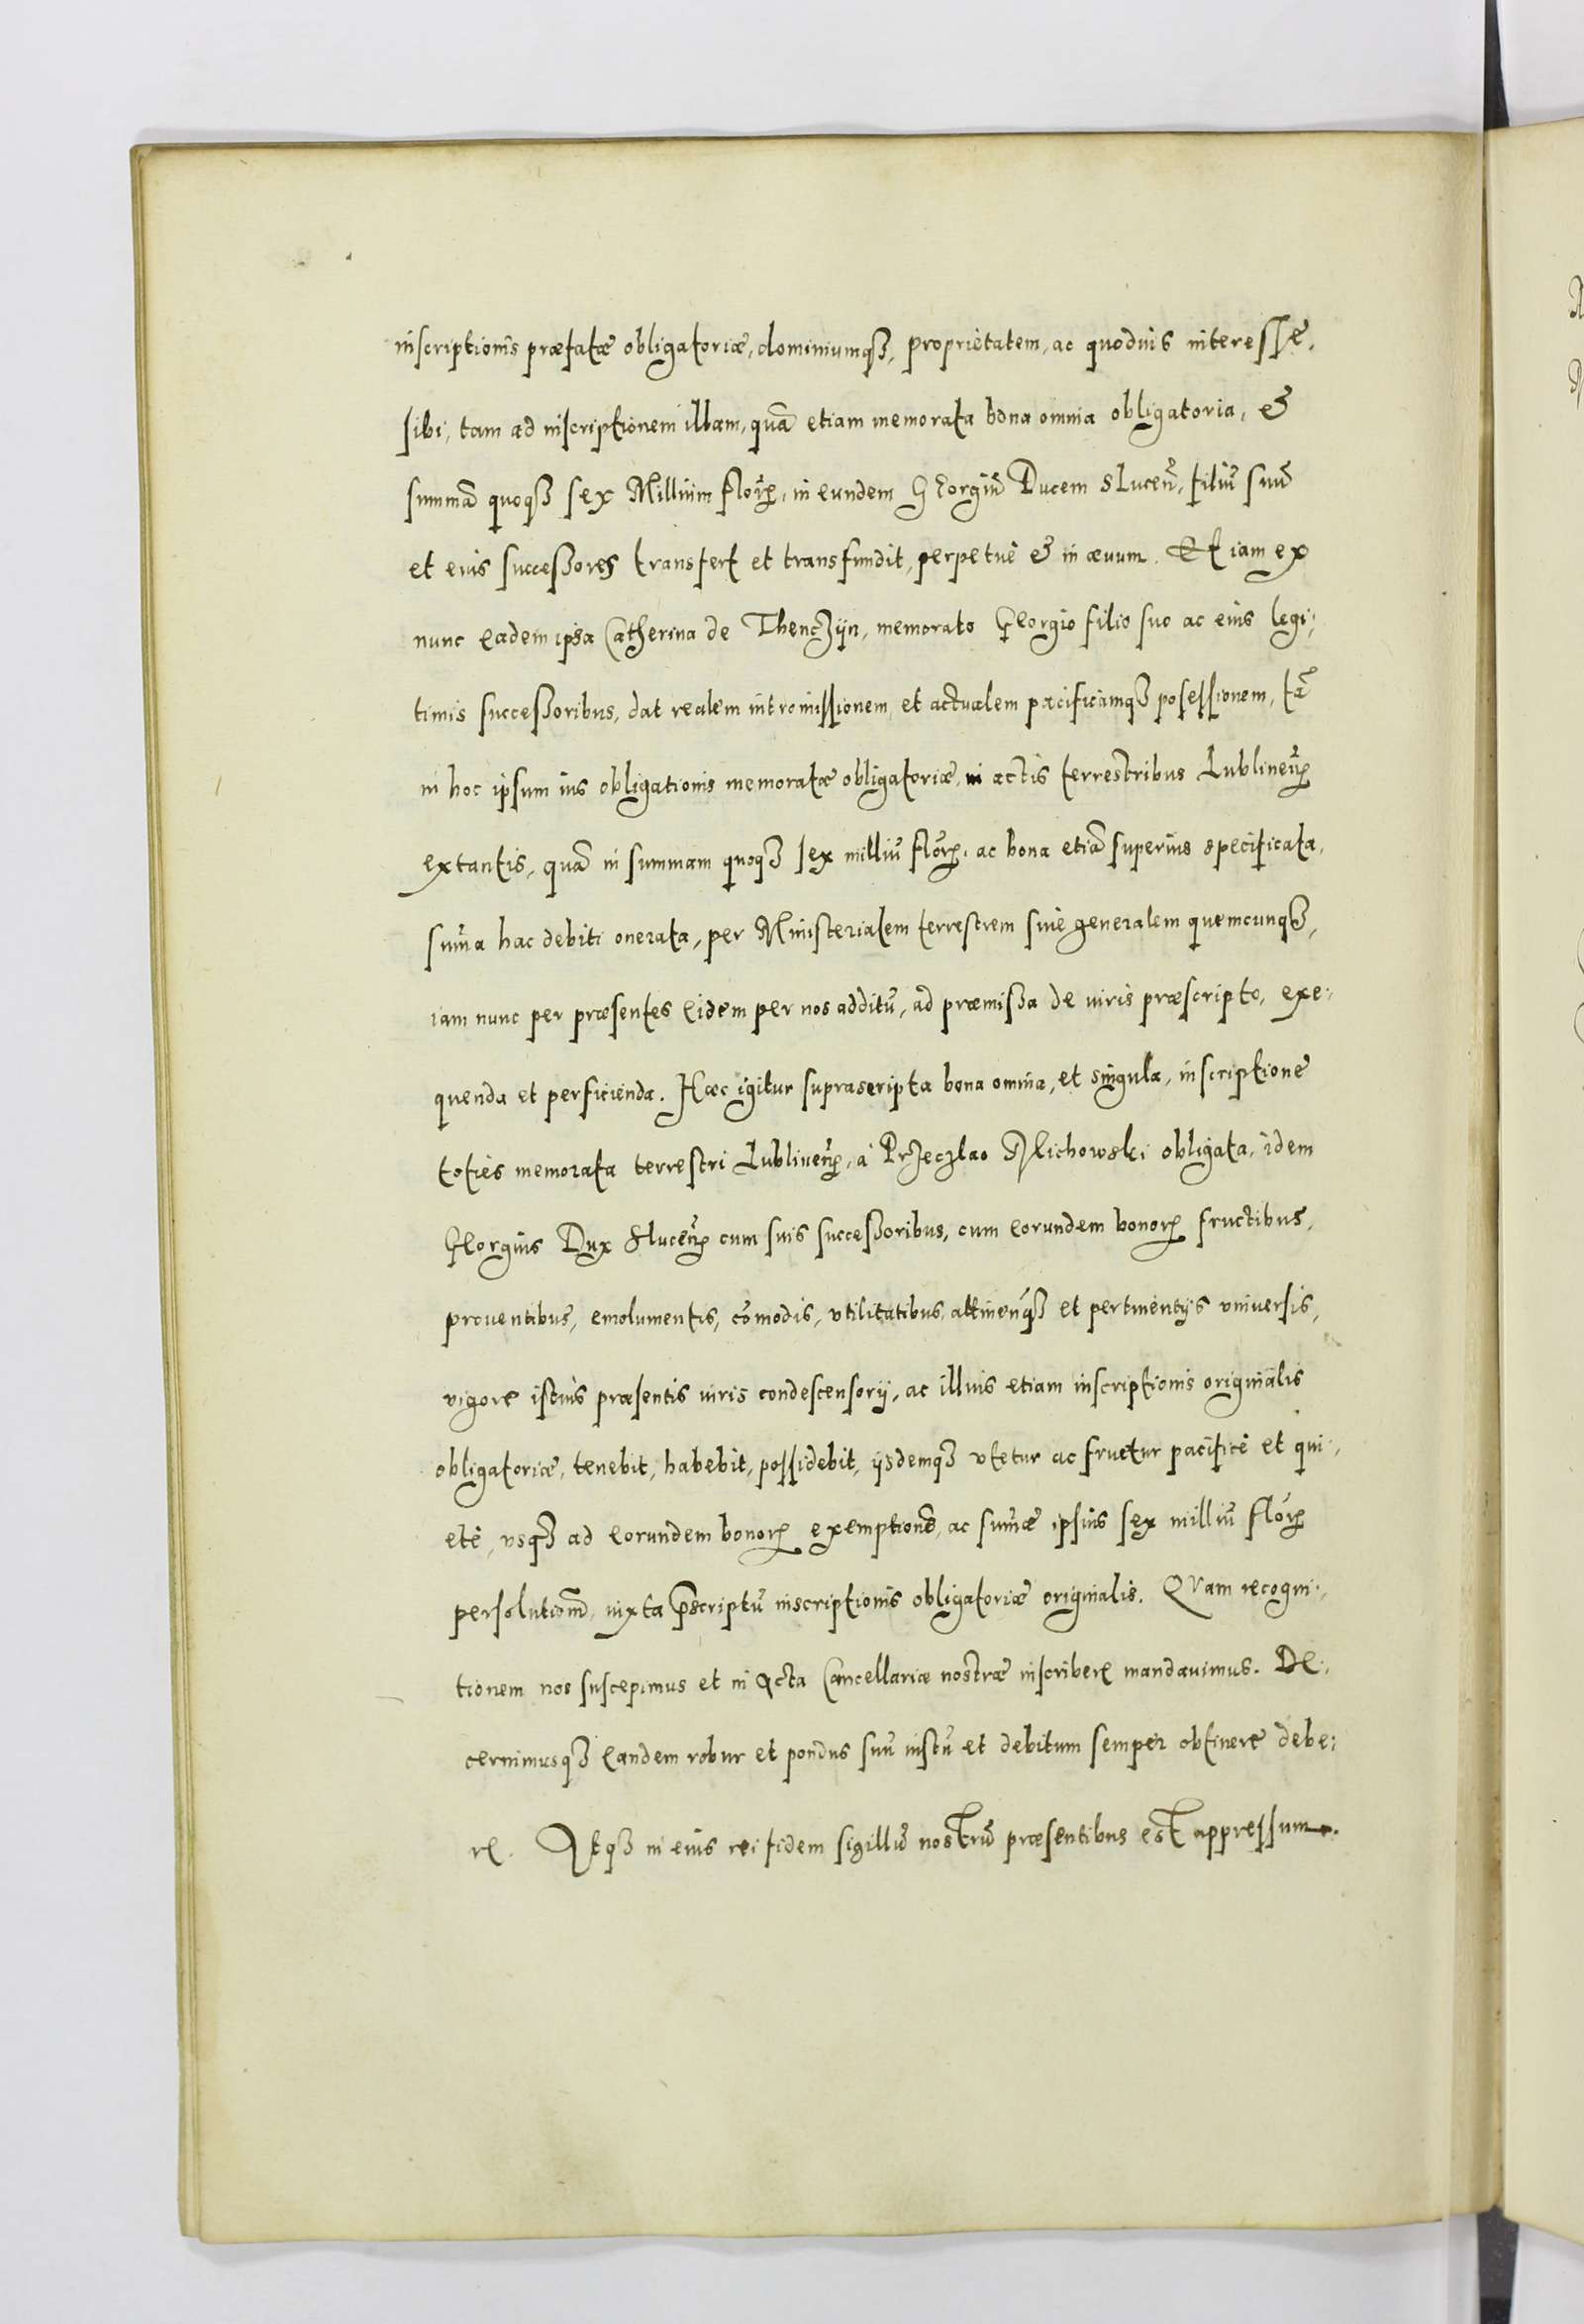 inscriptionis præfatæ obligatoriæ, dominiumqȝ, proprietatem, ac quoduis interesse,
sibi, tam ad inscriptionem illam, quā etiam memorata bona omnia obligatoria, &
summā quoqȝ sex Millium floꝝ, in eundem Georgiū Ducem Slucen̄, filiū suū
et eius successores transfert et transfundit, perpetuè & in æuum. Et iam ex
nunc eadem ipsa Catherina de Thenczijn, memorato Georgio filio suo ac eius legi:
timis successoribus, dat realem intromissionem, et actualem pacificamqȝ posessionem, tā
in hoc ipsum ius obligationis memoratæ obligatoriæ, in actis terrestribus Lublinen̄
extantis, quā in summam quoqȝ sex milliū floꝝ, ac bona etiā superius specificata,
sum̄a hac debiti onerata, per Ministerialem terrestrem siue generalem quemcunqȝ,
iam nunc per præsentes eidem per nos additū, ad præmissa de iuris præscripto, exe:
quenda et perficienda. Hæc igitur suprascripta bona omnia, et singula, inscriptione
toties memorata terrestri Lublinen̄, à Przeczlao Mlichowski obligata, idem
Georgius Dux Slucen̄ cum suis successoribus, cum eorundem bonoꝝ fructibus,
prouentibus, emolumentis, cōmodis, vtilitatibus, attinen̄qȝ et pertinentijs vniuersis,
vigore istius præsentis iuris condescensorij, ac illius etiam inscriptionis originalis
obligatoriæ, tenebit, habebit, possidebit, ijsdemqȝ vtetur ac fruetur pacificè et qui:
etè, vsqȝ ad eorundem bonoꝝ exemptionē, ac sum̄æ ipsius sex milliū floꝝ
persolutionē, iuxta p̄scriptū inscriptionis obligatoriæ originalis. Quam recogni:
tionem nos suscepimus et in Acta Cancellariæ nostræ inscribere mandauimus. De:
cernimusqȝ eandem robur et pondus suū iustū et debitum semper obtinere debe:
re. Atqȝ in eius rei fidem sigillū nostrū præsentibus est appressum.